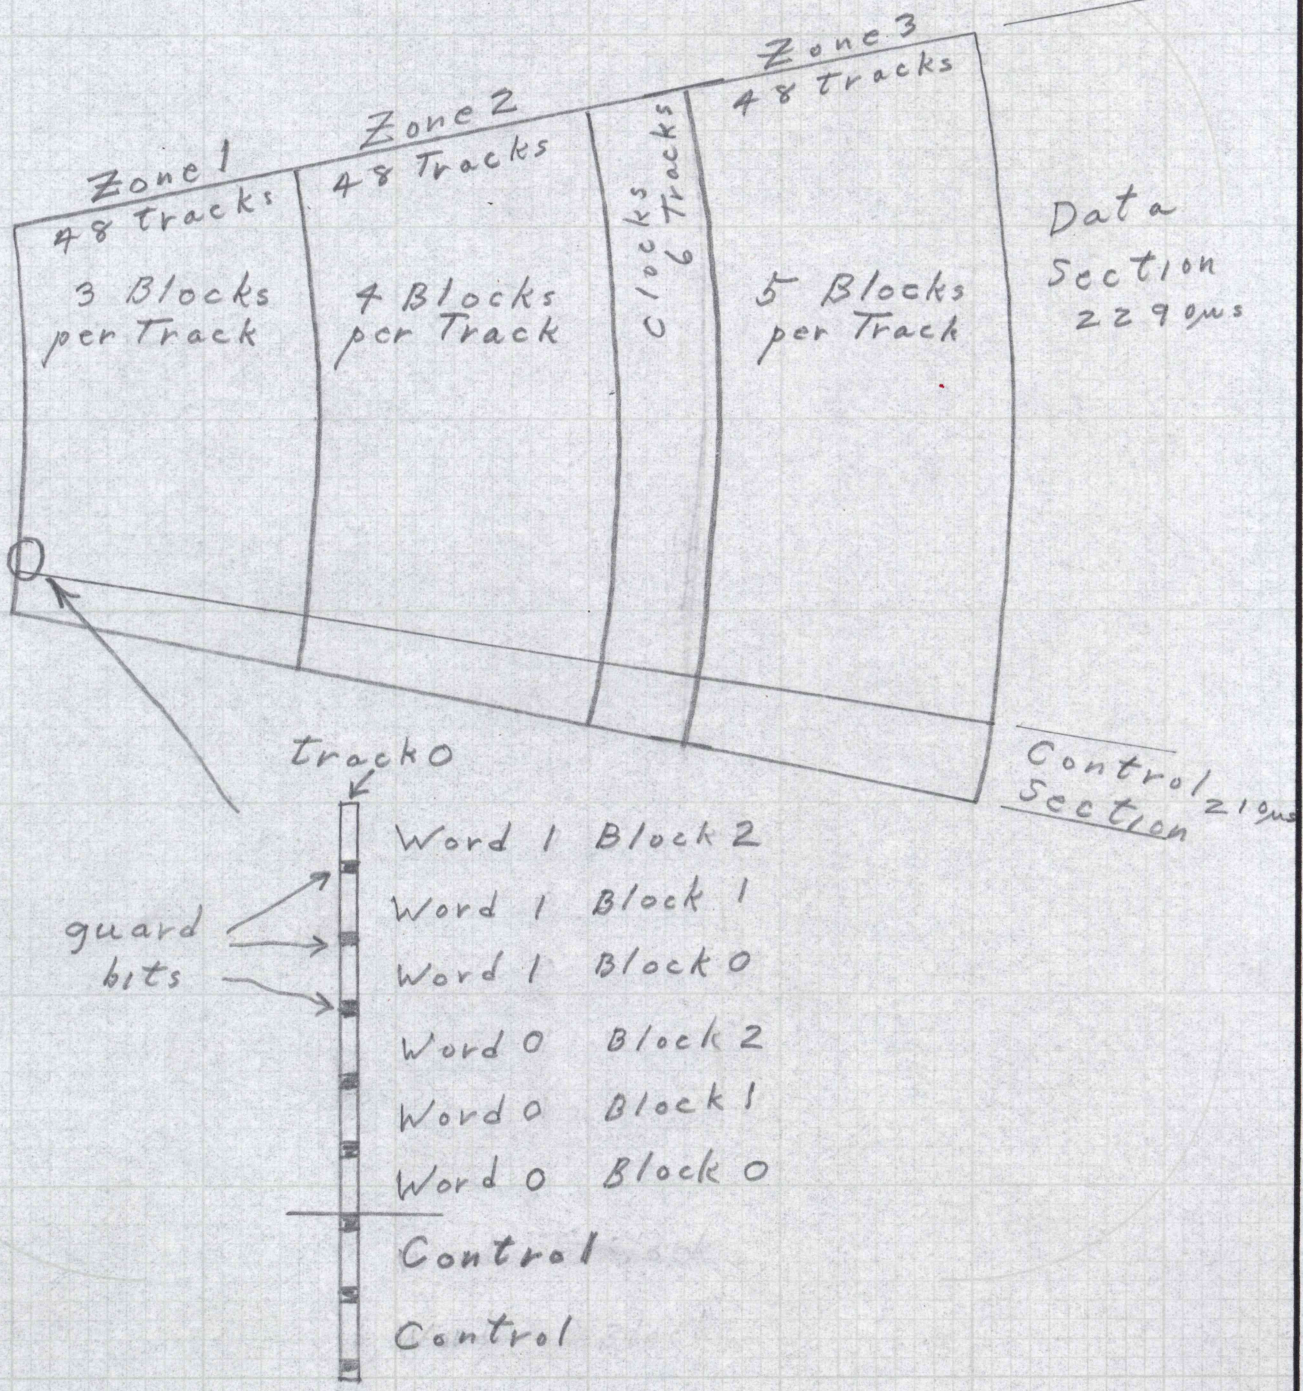 Zone 1
48 tracks
3 Blocks
per Track
Zone 2
48 Tracks
4 Blocks
per Track
Clocks
6 Tracks
Zone 3
48 tracks
5 Blocks
per Track
Data
Section
2290μs
Control
Section
210μs
track 0
Word 1 Block 2
Word 1 Block 1
Word 1 Block 0
Word 0 Block 2
Word 0 Block 1
Word 0 Block 0
Control
Control
guard
bits